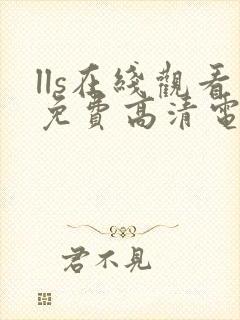 lls在綫觀看
免費高清電
君不見